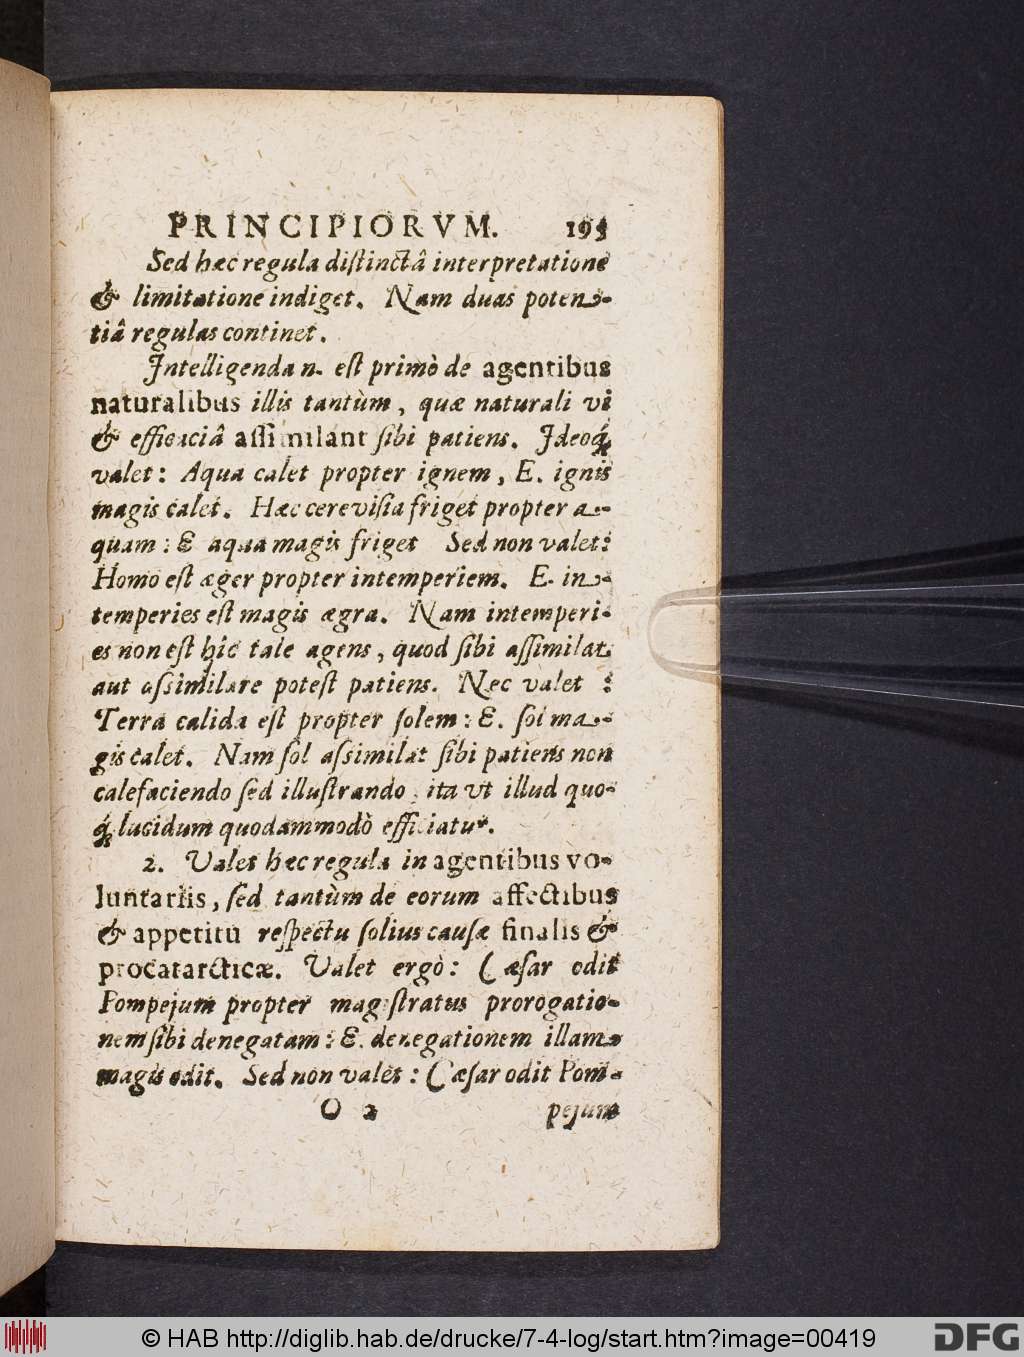 PRINCIPIORVM. 195
Sed hæc regula distinctâ interpretatione
& limitatione indiget. Nam duas poten-
tiâ regulas continet.
Intelligenda n. est primò de agentibus
naturalibus illis tantùm, quæ naturali vi
& efficaciâ assimilant sibi patiens. Ideoq́;
valet: Aqua calet propter ignem, E. ignis
magis calet. Hæc cerevisia friget propter a-
quam: E aqua magis friget Sed non valet:
Homo est æger propter intemperiem. E. in-
temperies est magis ægra. Nam intemperi-
es non est hîc tale agens, quod sibi assimilat
aut assimilare potest patiens. Nec valet :
Terra calida est propter solem: E. sol ma-
gis calet. Nam sol assimilat sibi patiens non
calefaciendo sed illustrando, ita vt illud quo-
q́; lucidum quodammodò efficiatur.
2. Valet hæc regula in agentibus vo-
luntariis, sed tantùm de eorum affectibus
& appetitu respectu solius causæ finalis &
procatarcticæ. Valet ergò: Cæsar odit
Pompejum propter magistratus prorogatio-
nem sibi denegatam: E. denegationem illam
magis odit. Sed non valet: Cæsar odit Pom-
O 2 pejum
© HAB http://diglib.hab.de/drucke/7-4-log/start.htm?image=00419
DFG